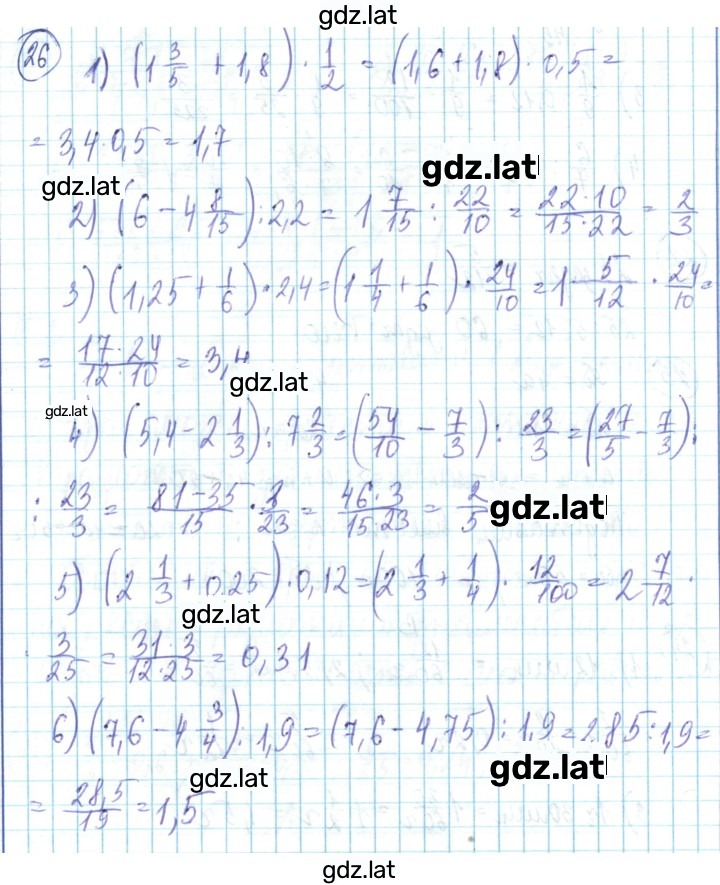 gdz.lat
26 1) (1 3/5 + 1,8) · 1/2 = (1,6 + 1,8) · 0,5 =
= 3,4 · 0,5 = 1,7
gdz.lat
gdz.lat
2) (6 − 4 8/15) : 2,2 = 1 7/15 : 22/10 = 22·10/15·22 = 2/3
3) (1,25 + 1/6) · 2,4 = (1 1/4 + 1/6) · 24/10 = 1 5/12 · 24/10 =
= 17·24/12·10 = 3,4
gdz.lat
gdz.lat
4) (5,4 − 2 1/3) : 7 2/3 = (54/10 − 7/3) : 23/3 = (27/5 − 7/3) :
: 23/3 = 81−35/15 · 3/23 = 46·3/15·23 = 2/5
gdz.lat
5) (2 1/3 + 0,25) · 0,12 = (2 1/3 + 1/4) · 12/100 = 2 7/12 ·
gdz.lat
3/25 = 31·3/12·25 = 0,31
6) (7,6 − 4 3/4) : 1,9 = (7,6 − 4,75) : 1,9 = 2,85 : 1,9 =
gdz.lat
gdz.lat
= 28,5/19 = 1,5
gdz.lat